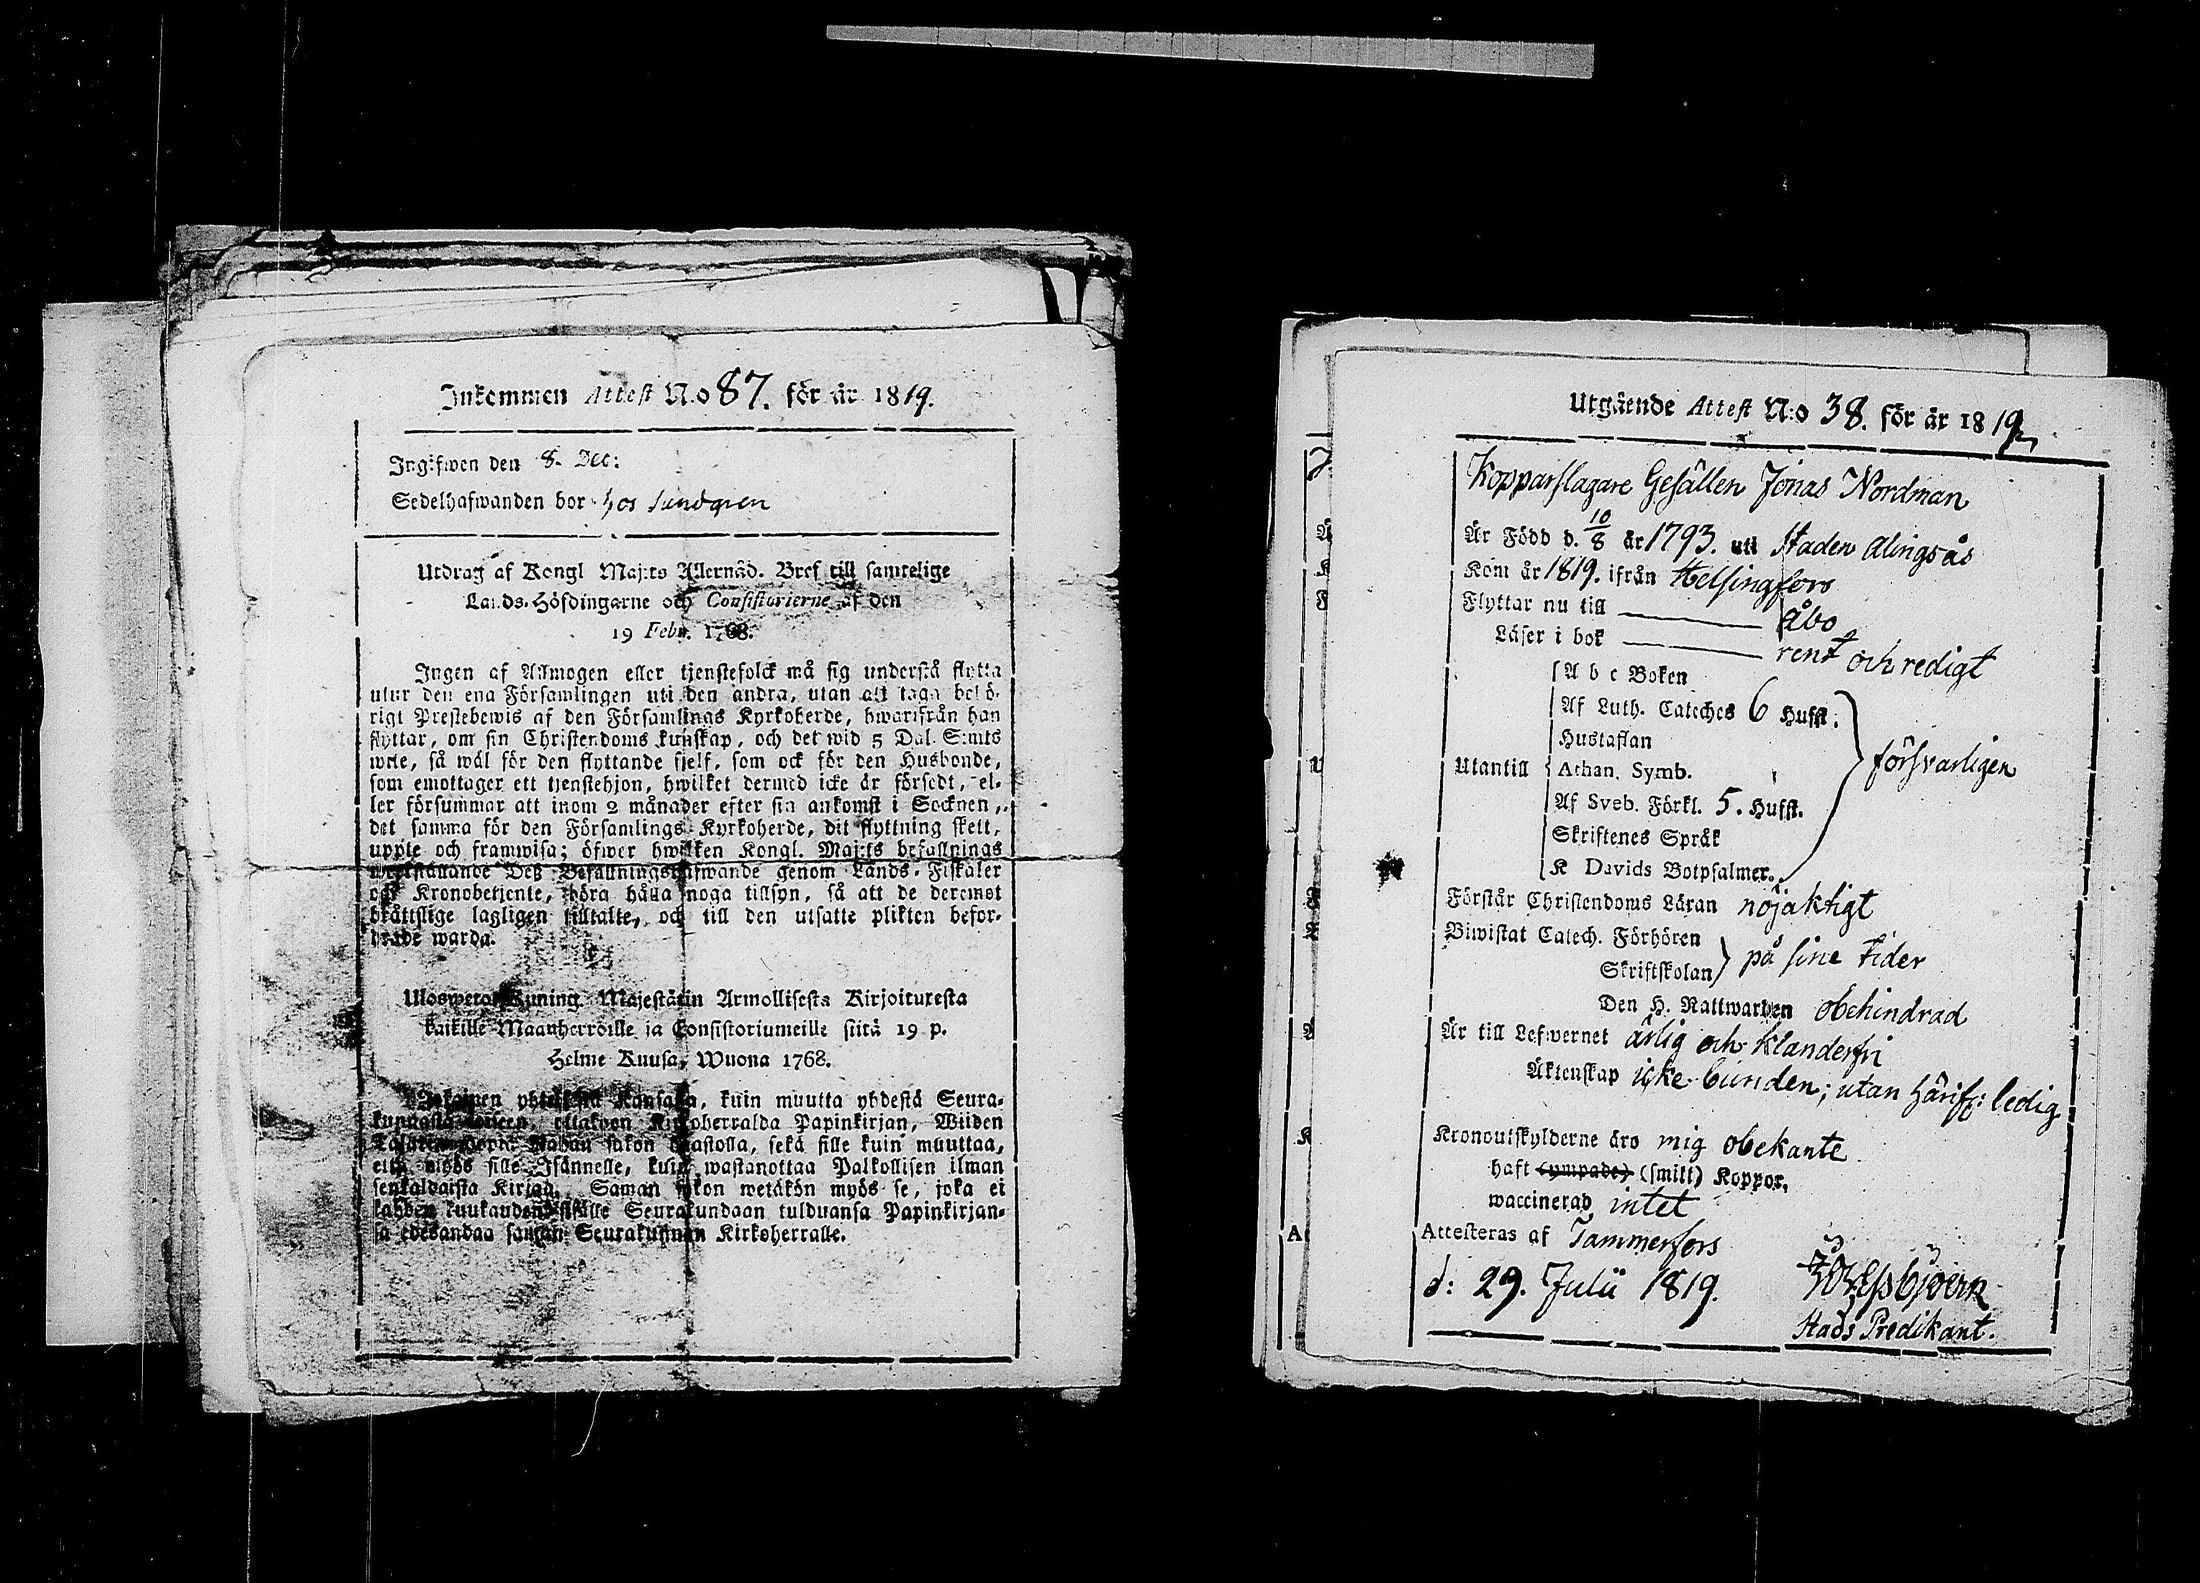 Inkommen Attest N:o 87. för år 1819.
Ingifwen den 8. Dec:
Sedelhafwanden bor hos Sundgren
Utdrag af Kongl Maj:ts Allernåd. Bref till samtelige
Lands-Höfdingarne och Consistorierne af den
19 Febr. 1768.
Ingen af Allmogen eller tjenstefolck må sig understå flytta
utur den ena Församlingen uti den andra, utan att taga behö-
rigt Prestebewis af den Församlings Kyrkoherde, hwarifrån han
flyttar, om sin Christendoms kunskap, och det wid 5 Dal. S:mts
wite, så wäl för den flyttande sjelf, som ock för den Husbonde,
som emottager ett tjenstehjon, hwilket dermed icke är försedt, el-
ler försummar att inom 2 månader efter sin ankomst i Socknen,
det samma för den Församlings Kyrkoherde, dit flyttning skett,
uppte och framwisa; öfwer hwilken Kongl. Maj:ts befallnings
werkställande Deß Befallningshafwande genom Lands-Fiskaler
och Kronobetjente, böra hålla noga tillsyn, så att de deremot
bråttslige lagligen tilltalte, och till den utsatte plikten befor-
drade warda.
Ulosweto Kuning. Majestätin Armollisesta Kirjoituresta
kaikille Maanherroille ja Consistoriumeille siitä 19 p.
Helme Kuusa, Wuona 1768.
Jokainen yhteisestä Kansasta, kuin muutta yhdestä Seura-
kunnasta toiseen, ottakoon Kirkoherralda Papinkirjan, Wiiden
Talarin Hopia Rahan sakon haastolla, sekä sille kuin muuttaa,
että myös sille Isännelle, kuin wastanottaa Palkollisen ilman
senkaldaista Kirjaa. Saman sakon wetäkön myös se, joka ei
kahden kuukauden sisälle Seurakundaan tulduansa Papinkirjan-
sa edesandaa saman Seurakunnan Kirkoherralle.
Utgående Attest N:o 38. för år 1819
Kopparslagare Gesällen Jonas Nordman
Är Född d. 10/8 år 1793. uti Staden Alingsås
Kom år 1819. ifrån Helsingfors
Flyttar nu till Åbo
Läser i bok rent och redigt
A b c Boken
Af Luth. Cateches 6 Hufst.
Hustaflan
Utantill Athan. Symb. försvarligen
Af Sveb. Förkl. 5. Hufst.
Skriftenes Språk
K Davids Botpsalmer.
Förstår Christendoms Läran nöjaktigt
Biwistat Catech. Förhören
Skriftskolan på sine tider
Den H. Nattwarden obehindrad
Är till Lefwernet ärlig och klanderfri
Äktenskap icke bunden; utan härifr: ledig
Kronoutskylderne äro mig obekante
haft (ympade) (smitt) Koppor,
waccinerad intet
Attesteras af Tammerfors
d: 29. Julii 1819.
Stads Predikant.